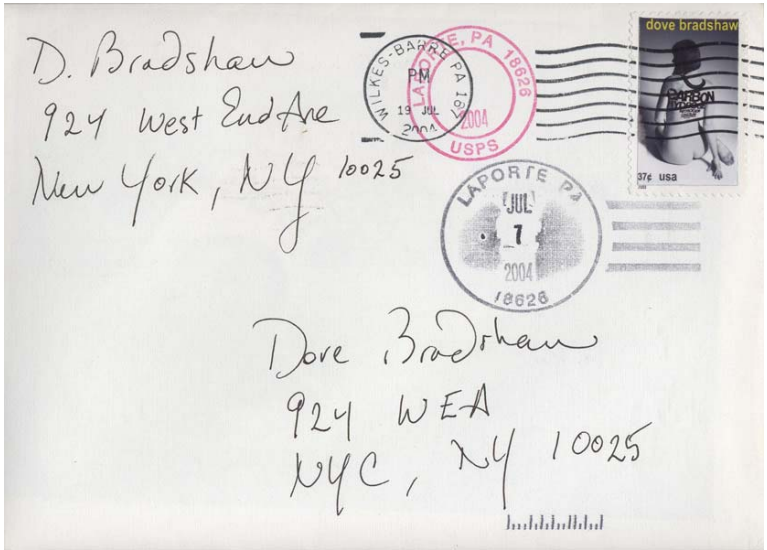 D. Bradshaw
924 West End Ave
New York, NY 10025
WILKES-BARRE PA
PM
19 JUL
2004
LAPORTE, PA 18626
2004
USPS
dove bradshaw
CARBON
37¢ usa
LAPORTE Pa
JUL
7
2004
18626
Dove Bradshaw
924 WEA
NYC, NY 10025